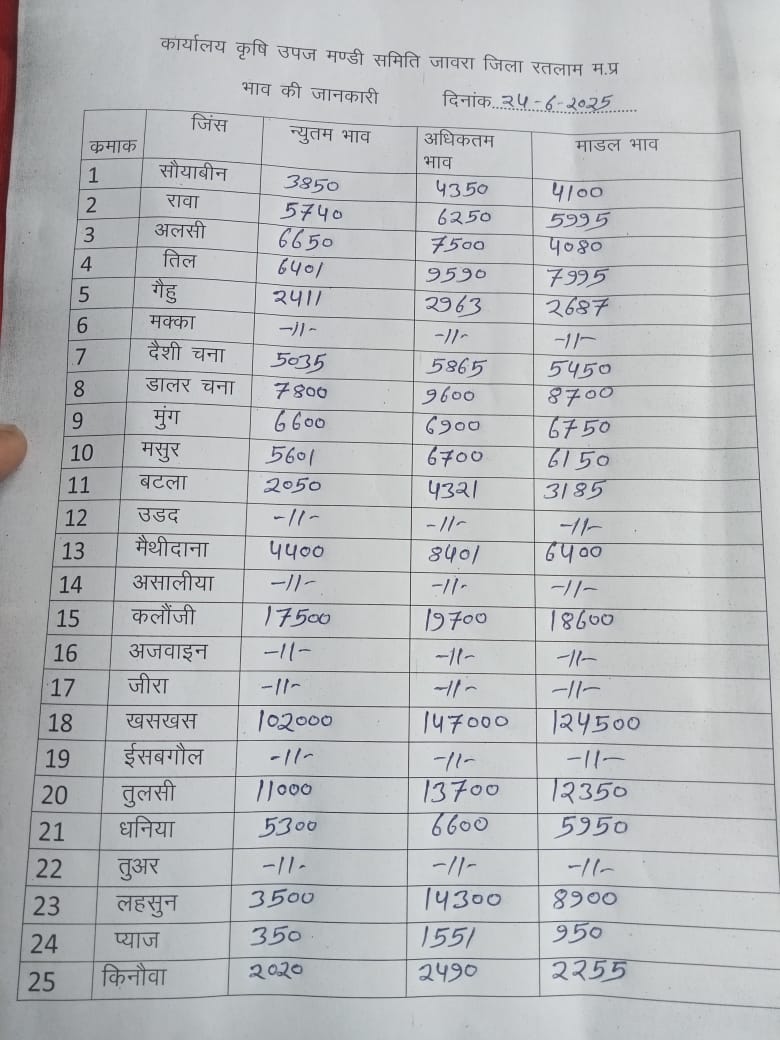 कार्यालय कृषि उपज मण्डी समिति जावरा जिला रतलाम म.प्र
भाव की जानकारी दिनांक 24-6-2025
कमाक जिंस न्युतम भाव अधिकतम भाव माडल भाव
1 सौयाबीन 3850 4350 4100
2 रावा 5740 6250 5995
3 अलसी 6650 7500 4080
4 तिल 6401 9590 7995
5 गैहु 2411 2963 2687
6 मक्का -11- -11- -11-
7 दैशी चना 5035 5865 5450
8 डालर चना 7800 9600 8700
9 मुंग 6600 6900 6750
10 मसुर 5601 6700 6150
11 बटला 2050 4321 3185
12 उडद -11- -11- -11-
13 मैथीदाना 4400 8401 6400
14 असालीया -11- -11- -11-
15 कलौंजी 17500 19700 18600
16 अजवाइन -11- -11- -11-
17 जीरा -11- -11- -11-
18 खसखस 102000 147000 124500
19 ईसबगौल -11- -11- -11-
20 तुलसी 11000 13700 12350
21 धनिया 5300 6600 5950
22 तुअर -11- -11- -11-
23 लहसुन 3500 14300 8900
24 प्याज 350 1551 950
25 किनौवा 2020 2490 2255